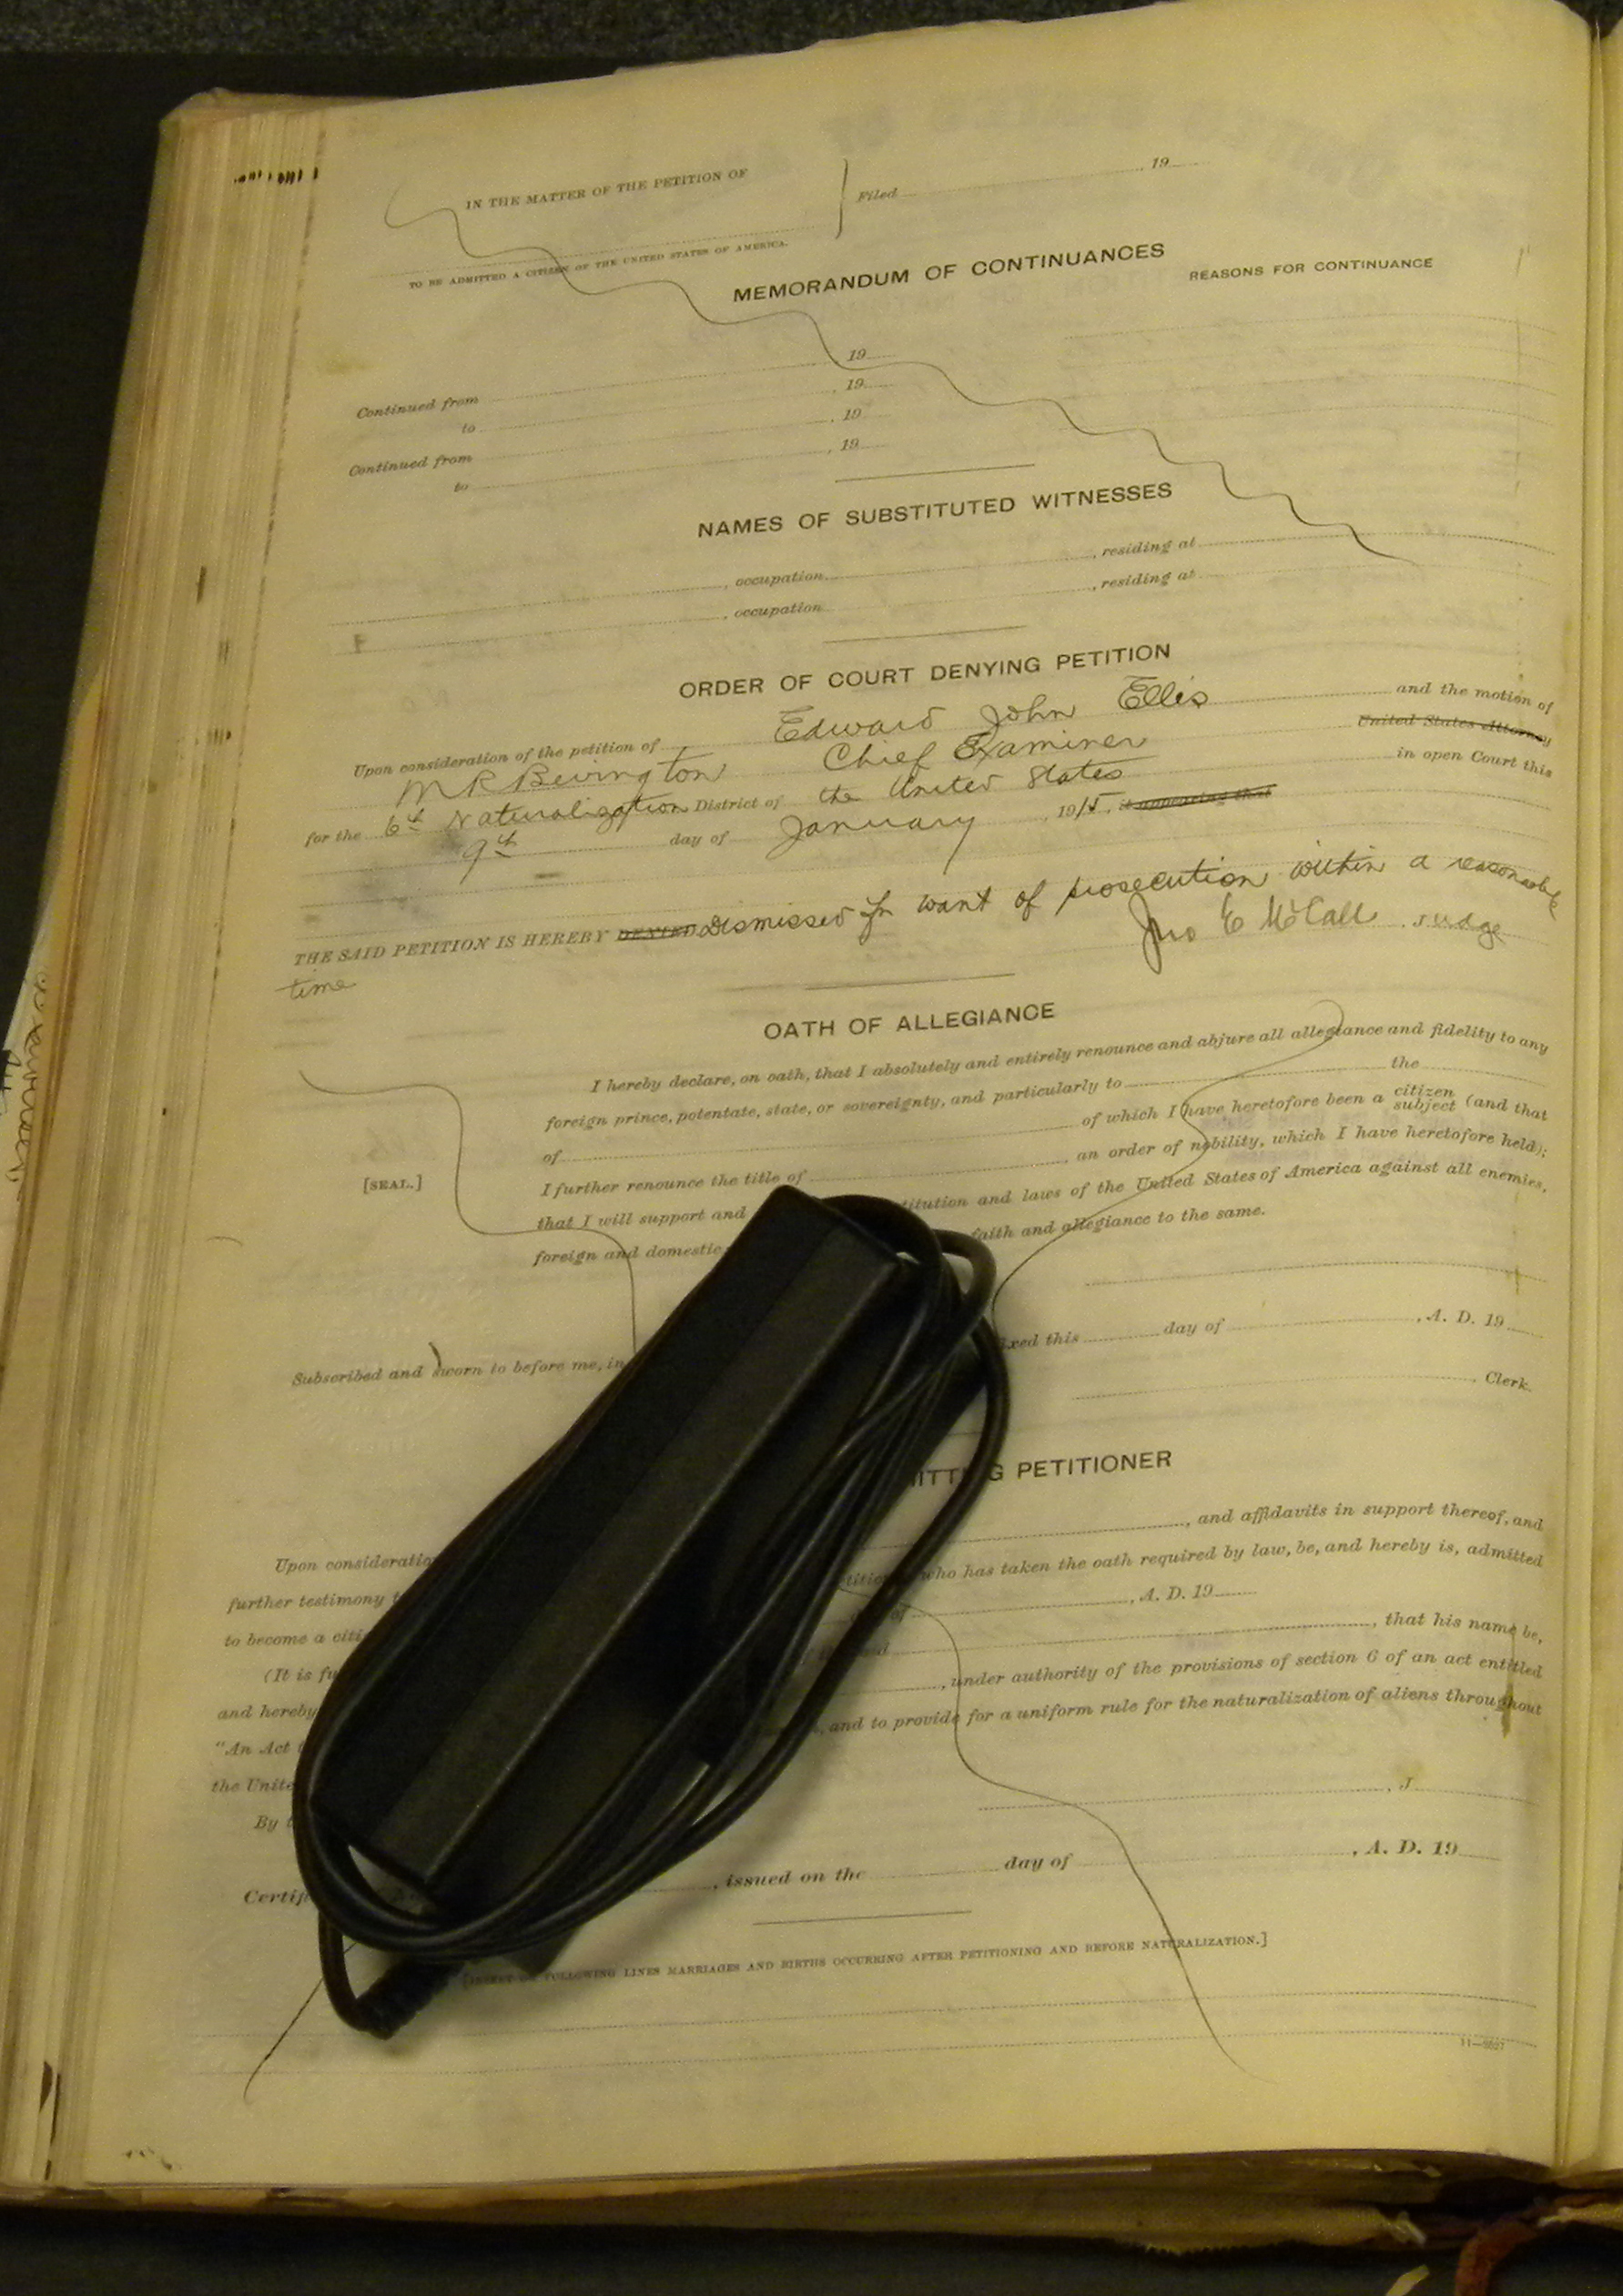 IN THE MATTER OF THE PETITION OF
Filed , 19
TO BE ADMITTED A CITIZEN OF THE UNITED STATES OF AMERICA.
MEMORANDUM OF CONTINUANCES
REASONS FOR CONTINUANCE
Continued from , 19
to , 19
Continued from , 19
to , 19
NAMES OF SUBSTITUTED WITNESSES
, occupation , residing at
, occupation , residing at
ORDER OF COURT DENYING PETITION
Upon consideration of the petition of Edward John Ellis and the motion of
M R Bevington Chief Examiner United States Attorney
for the 6th Naturalization District of the United States in open Court this
9th day of January , 1915, it appearing that
THE SAID PETITION IS HEREBY DENIED Dismissed for want of prosecution within a reasonable
time
Jno E McCall Judge
OATH OF ALLEGIANCE
I hereby declare, on oath, that I absolutely and entirely renounce and abjure all allegiance and fidelity to any
foreign prince, potentate, state, or sovereignty, and particularly to the
of of which I have heretofore been a citizen subject (and that
I further renounce the title of , an order of nobility, which I have heretofore held);
that I will support and titution and laws of the United States of America against all enemies,
foreign and domestic, faith and allegiance to the same.
[SEAL.]
Subscribed and sworn to before me, in xed this day of , A. D. 19
, Clerk.
MITTING PETITIONER
Upon consideratio , and affidavits in support thereof, and
further testimony t who has taken the oath required by law, be, and hereby is, admitted
to become a citi of , A. D. 19
(It is fu , that his name be,
and hereby , under authority of the provisions of section 6 of an act entitled
"An Act , and to provide for a uniform rule for the naturalization of aliens throughout
the Unite
By t , J
Certif , issued on the day of , A. D. 19
FOLLOWING LINES MARRIAGES AND BIRTHS OCCURRING AFTER PETITIONING AND BEFORE NATURALIZATION.]